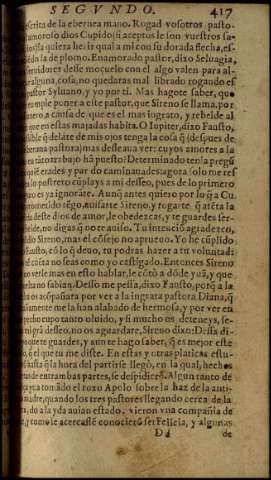 SEGVNDO. 417
escrita de la ebernea mano. Rogad vosotros pasto-
amoroso dios Cupido (si aceptos le son vuestros sa-
me quiera herir qual a mi con su dorada flecha, es-
de la de plomo. Enamorado pastor, dixo Seluagia,
seruidores deste moçuelo con el algo valen para al-
alguna, cosa, no quedaras mal librado rogando es
pastor Syluano, y yo por ti. Mas hagote saber, que
exemplo poner a este pastor, que Sireno se llama, por
a causa de que es el mas ingrato, y rebelde al
que en estas majadas habita. O Iupiter, dixo Fausto,
sible q̃ delãte de mis ojos tenga la cosa q̃ (despues de
pastora) mas dessea ua ver: cuyos amores a la
tãto trabajo hã puesto? Determinado tenia pregũ
quiẽ erades y par do caminauades: agora solo me res
lo postrero cũplays a mi desseo, pues de lo primero
ya ignorãte. Aunq̃ antes quiero por lo q̃ a Cu.
prometido tẽgo, auisarte Sireno, y rogarte q̃ atẽta la
deste dios de amor, le obedezcas, y te guardes fer-
no digas q̃ no te auiso. Tu intenciõ agradezco,
Sireno, mas el cõsejo no aprueuo. Yo he cũplido
Fausto, cõ lo q̃ deuo, tu podras hazer a tu voluntad:
cõta no seas como yo castigado. Entonces Sireno
verse mas en esto hablar, le cõtò a dõde yuã, y que
sabian. Desso me pessa, dixo Fausto, porq̃ a la
os acõpañara por ver a la ingrata pastora Diana, q̃
mente me la han alabado de hermosa, y por ver en
pecho cupo tanto oluido, y si mucho os deteneys, se-
mi grã desseo. no os aguardare. Sireno dixo: Dessa di-
quete guardes, y aun te hago saber, q̃ es mejor este
q̃ el que tu me diste. En estas y otras platicas estu-
hasta q̃ la hora del partirse llegò, en la qual, hechos
de entrambas partes, se despidierõ. Algun tanto de
auia tomado el roxo Apolo sobre la haz de la anti-
madre, quando los tres pastores llegando cerca de la
do a la yda auian estado, vieron vna compañia de
y como se acercassẽ conocierõ ser Felicia, y algunas
Dd de